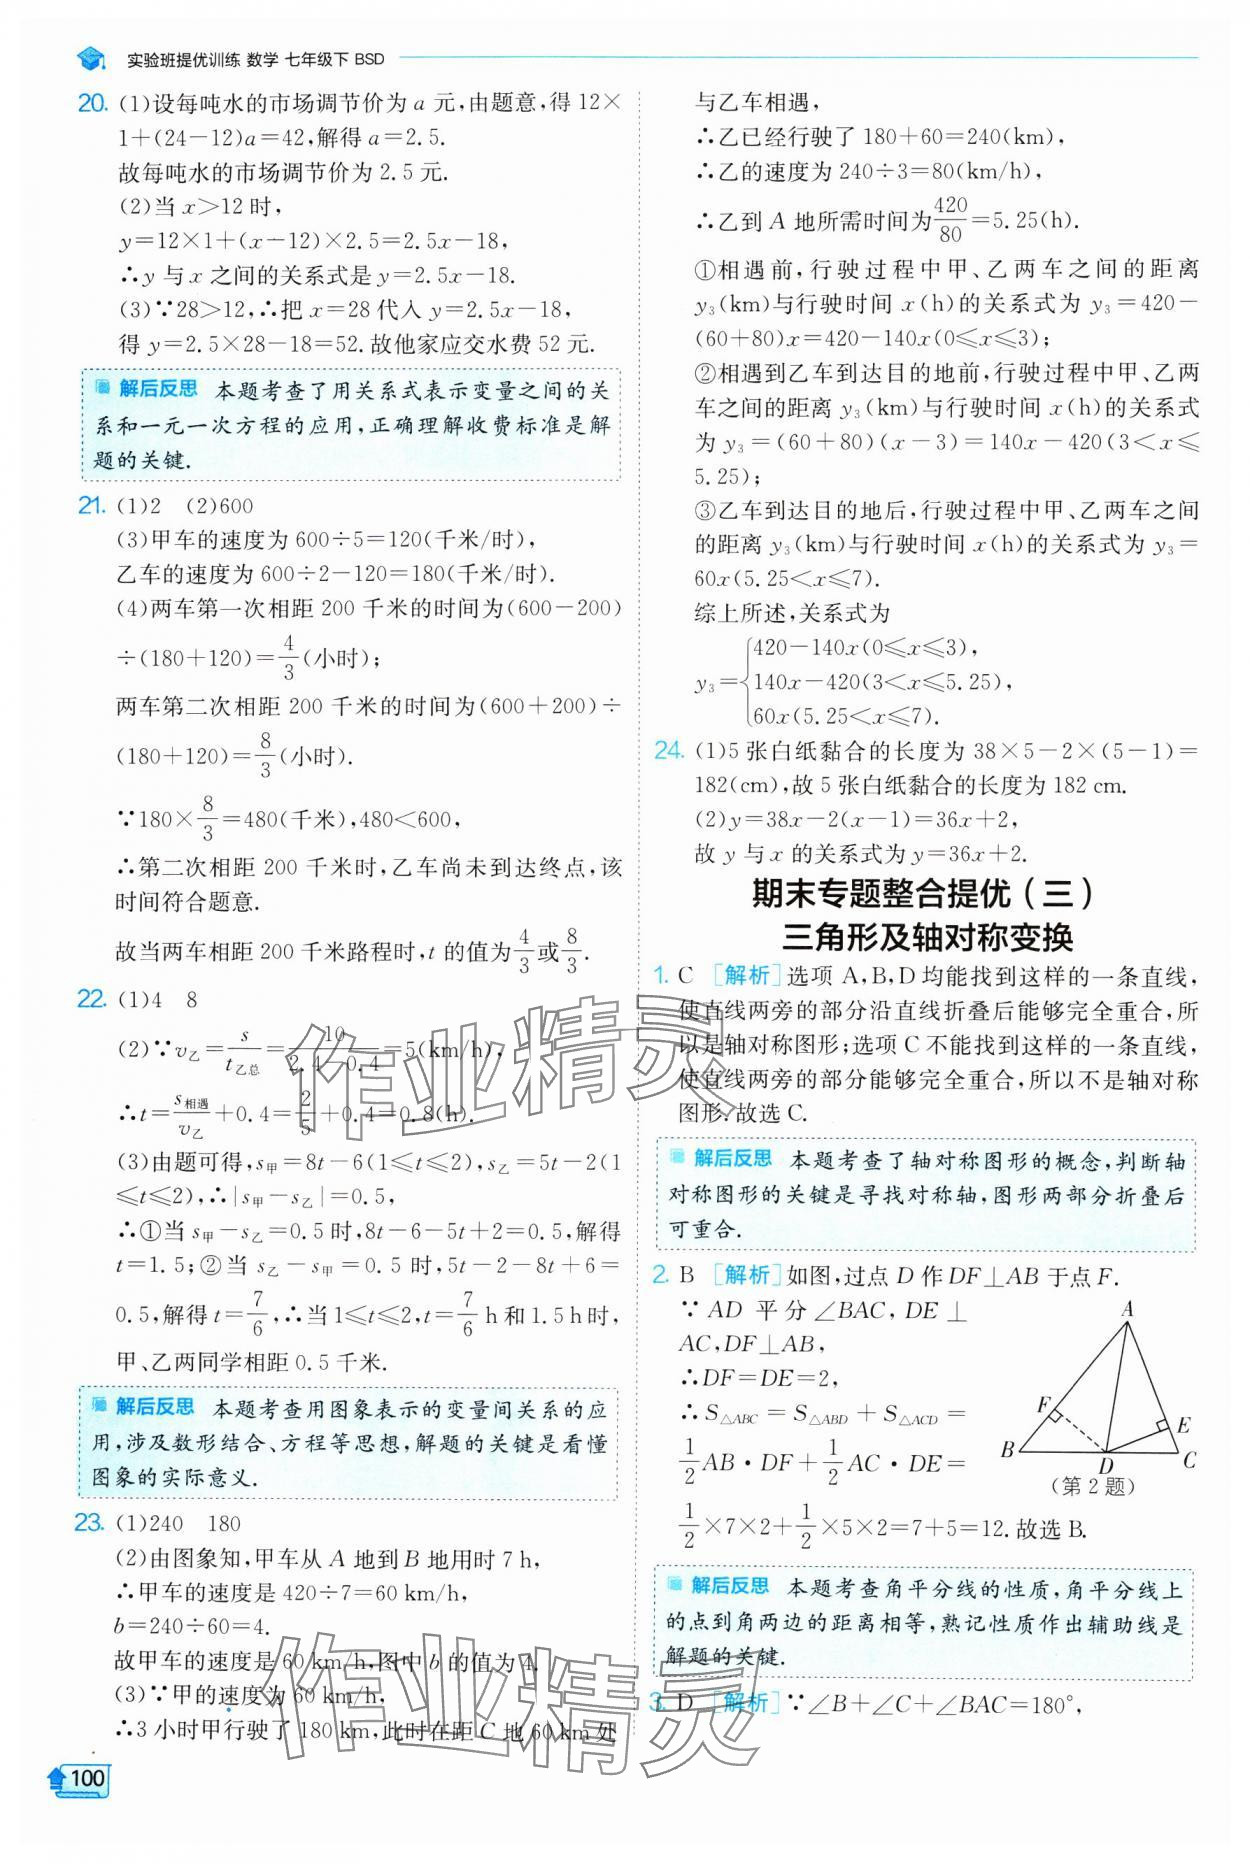 实验班提优训练 数学 七年级下 BSD
20. (1)设每吨水的市场调节价为 a 元,由题意,得 12×
1+(24-12)a=42,解得 a=2.5.
故每吨水的市场调节价为 2.5 元.
(2)当 x>12 时,
y=12×1+(x-12)×2.5=2.5x-18,
∴y 与 x 之间的关系式是 y=2.5x-18.
(3)∵28>12,∴把 x=28 代入 y=2.5x-18,
得 y=2.5×28-18=52.故他家应交水费 52 元.
解后反思 本题考查了用关系式表示变量之间的关
系和一元一次方程的应用,正确理解收费标准是解
题的关键.
21. (1)2 (2)600
(3)甲车的速度为 600÷5=120(千米/时),
乙车的速度为 600÷2-120=180(千米/时).
(4)两车第一次相距 200 千米的时间为(600-200)
÷(180+120)=4/3(小时);
两车第二次相距 200 千米的时间为(600+200)÷
(180+120)=8/3(小时).
∵180×8/3=480(千米),480<600,
∴第二次相距 200 千米时,乙车尚未到达终点,该
时间符合题意.
故当两车相距 200 千米路程时,t 的值为4/3或8/3.
22. (1)4 8
(2)∵v乙=s/t乙总=10/(2.4-0.4)=5(km/h),
∴t=s相遇/v乙+0.4=2/5+0.4=0.8(h).
(3)由题可得,s甲=8t-6(1≤t≤2),s乙=5t-2(1
≤t≤2),∴|s甲-s乙|=0.5,
∴①当 s甲-s乙=0.5 时,8t-6-5t+2=0.5,解得
t=1.5;②当 s乙-s甲=0.5 时,5t-2-8t+6=
0.5,解得 t=7/6,∴当1≤t≤2,t=7/6 h 和 1.5 h 时,
甲、乙两同学相距 0.5 千米.
解后反思 本题考查用图象表示的变量间关系的应
用,涉及数形结合、方程等思想,解题的关键是看懂
图象的实际意义.
23. (1)240 180
(2)由图象知,甲车从 A 地到 B 地用时 7 h,
∴甲车的速度是 420÷7=60 km/h,
b=240÷60=4.
故甲车的速度是 60 km/h,图中 b 的值为 4.
(3)∵甲的速度为 60 km/h,
∴3 小时甲行驶了 180 km,此时在距 C 地 60 km 处
100
与乙车相遇,
∴乙已经行驶了 180+60=240(km),
∴乙的速度为 240÷3=80(km/h),
∴乙到 A 地所需时间为420/80=5.25(h).
①相遇前,行驶过程中甲、乙两车之间的距离
y₃(km)与行驶时间 x(h)的关系式为 y₃=420-
(60+80)x=420-140x(0≤x≤3);
②相遇到乙车到达目的地前,行驶过程中甲、乙两
车之间的距离 y₃(km)与行驶时间 x(h)的关系式
为 y₃=(60+80)(x-3)=140x-420(3<x≤
5.25);
③乙车到达目的地后,行驶过程中甲、乙两车之间
的距离 y₃(km)与行驶时间 x(h)的关系式为 y₃=
60x(5.25<x≤7).
综上所述,关系式为
420-140x(0≤x≤3),
y₃={140x-420(3<x≤5.25),
60x(5.25<x≤7).
24. (1)5 张白纸黏合的长度为 38×5-2×(5-1)=
182(cm),故 5 张白纸黏合的长度为 182 cm.
(2)y=38x-2(x-1)=36x+2,
故 y 与 x 的关系式为 y=36x+2.
期末专题整合提优(三)
三角形及轴对称变换
1. C [解析]选项 A,B,D 均能找到这样的一条直线,
使直线两旁的部分沿直线折叠后能够完全重合,所
以是轴对称图形;选项 C 不能找到这样的一条直线,
使直线两旁的部分能够完全重合,所以不是轴对称
图形.故选 C.
解后反思 本题考查了轴对称图形的概念,判断轴
对称图形的关键是寻找对称轴,图形两部分折叠后
可重合.
2. B [解析]如图,过点 D 作 DF⊥AB 于点 F.
∵ AD 平分∠BAC, DE⊥
AC,DF⊥AB,
∴DF=DE=2,
∴S△ABC=S△ABD+S△ACD=
1/2AB·DF+1/2AC·DE=
1/2×7×2+1/2×5×2=7+5=12.故选 B.
A
F
E
B
D
C
(第 2 题)
解后反思 本题考查角平分线的性质,角平分线上
的点到角两边的距离相等,熟记性质作出辅助线是
解题的关键.
3. D [解析]∵∠B+∠C+∠BAC=180°,
作业精灵
作业精灵